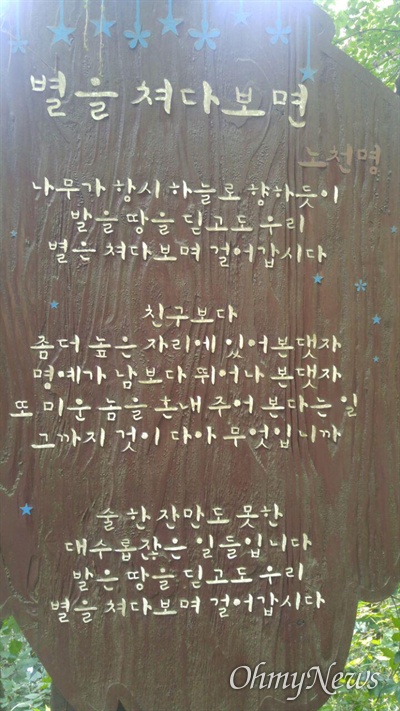 별을 쳐다보면
노천명
나무가 항시 하늘로 향하듯이
발을 땅을 딛고도 우리
별은 쳐다보며 걸어갑시다
친구보다
좀더 높은 자리에 있어본댓자
명예가 남보다 뛰어나 본댓자
또 미운 놈을 혼내 주어 본다는 일
그까지 것이 다아 무엇입니까
술 한 잔만도 못한
대수롭잖은 일들입니다
발은 땅을 딛고도 우리
별을 쳐다보며 걸어갑시다
OhmyNews